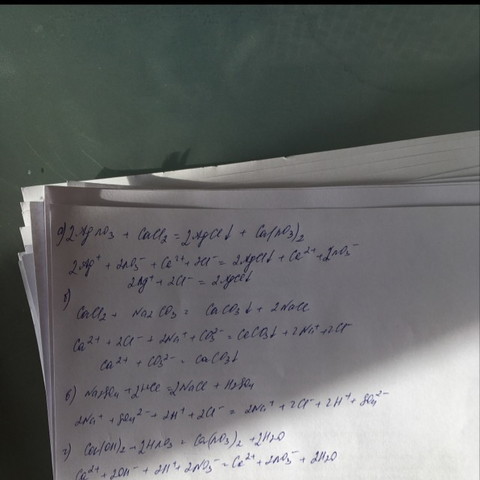 а) 2AgNO₃ + CaCl₂ = 2AgCl↓ + Ca(NO₃)₂
2Ag⁺ + 2NO₃⁻ + Ca²⁺ + 2Cl⁻ = 2AgCl↓ + Ca²⁺ + 2NO₃⁻
2Ag⁺ + 2Cl⁻ = 2AgCl↓
б)
CaCl₂ + Na₂CO₃ = CaCO₃↓ + 2NaCl
Ca²⁺ + 2Cl⁻ + 2Na⁺ + CO₃²⁻ = CaCO₃↓ + 2Na⁺ + 2Cl⁻
Ca²⁺ + CO₃²⁻ = CaCO₃↓
в) Na₂SO₄ + 2HCl = 2NaCl + H₂SO₄
2Na⁺ + SO₄²⁻ + 2H⁺ + 2Cl⁻ = 2Na⁺ + 2Cl⁻ + 2H⁺ + SO₄²⁻
г) Ca(OH)₂ + 2HNO₃ = Ca(NO₃)₂ + 2H₂O
Ca²⁺ + 2OH⁻ + 2H⁺ + 2NO₃⁻ = Ca²⁺ + 2NO₃⁻ + 2H₂O